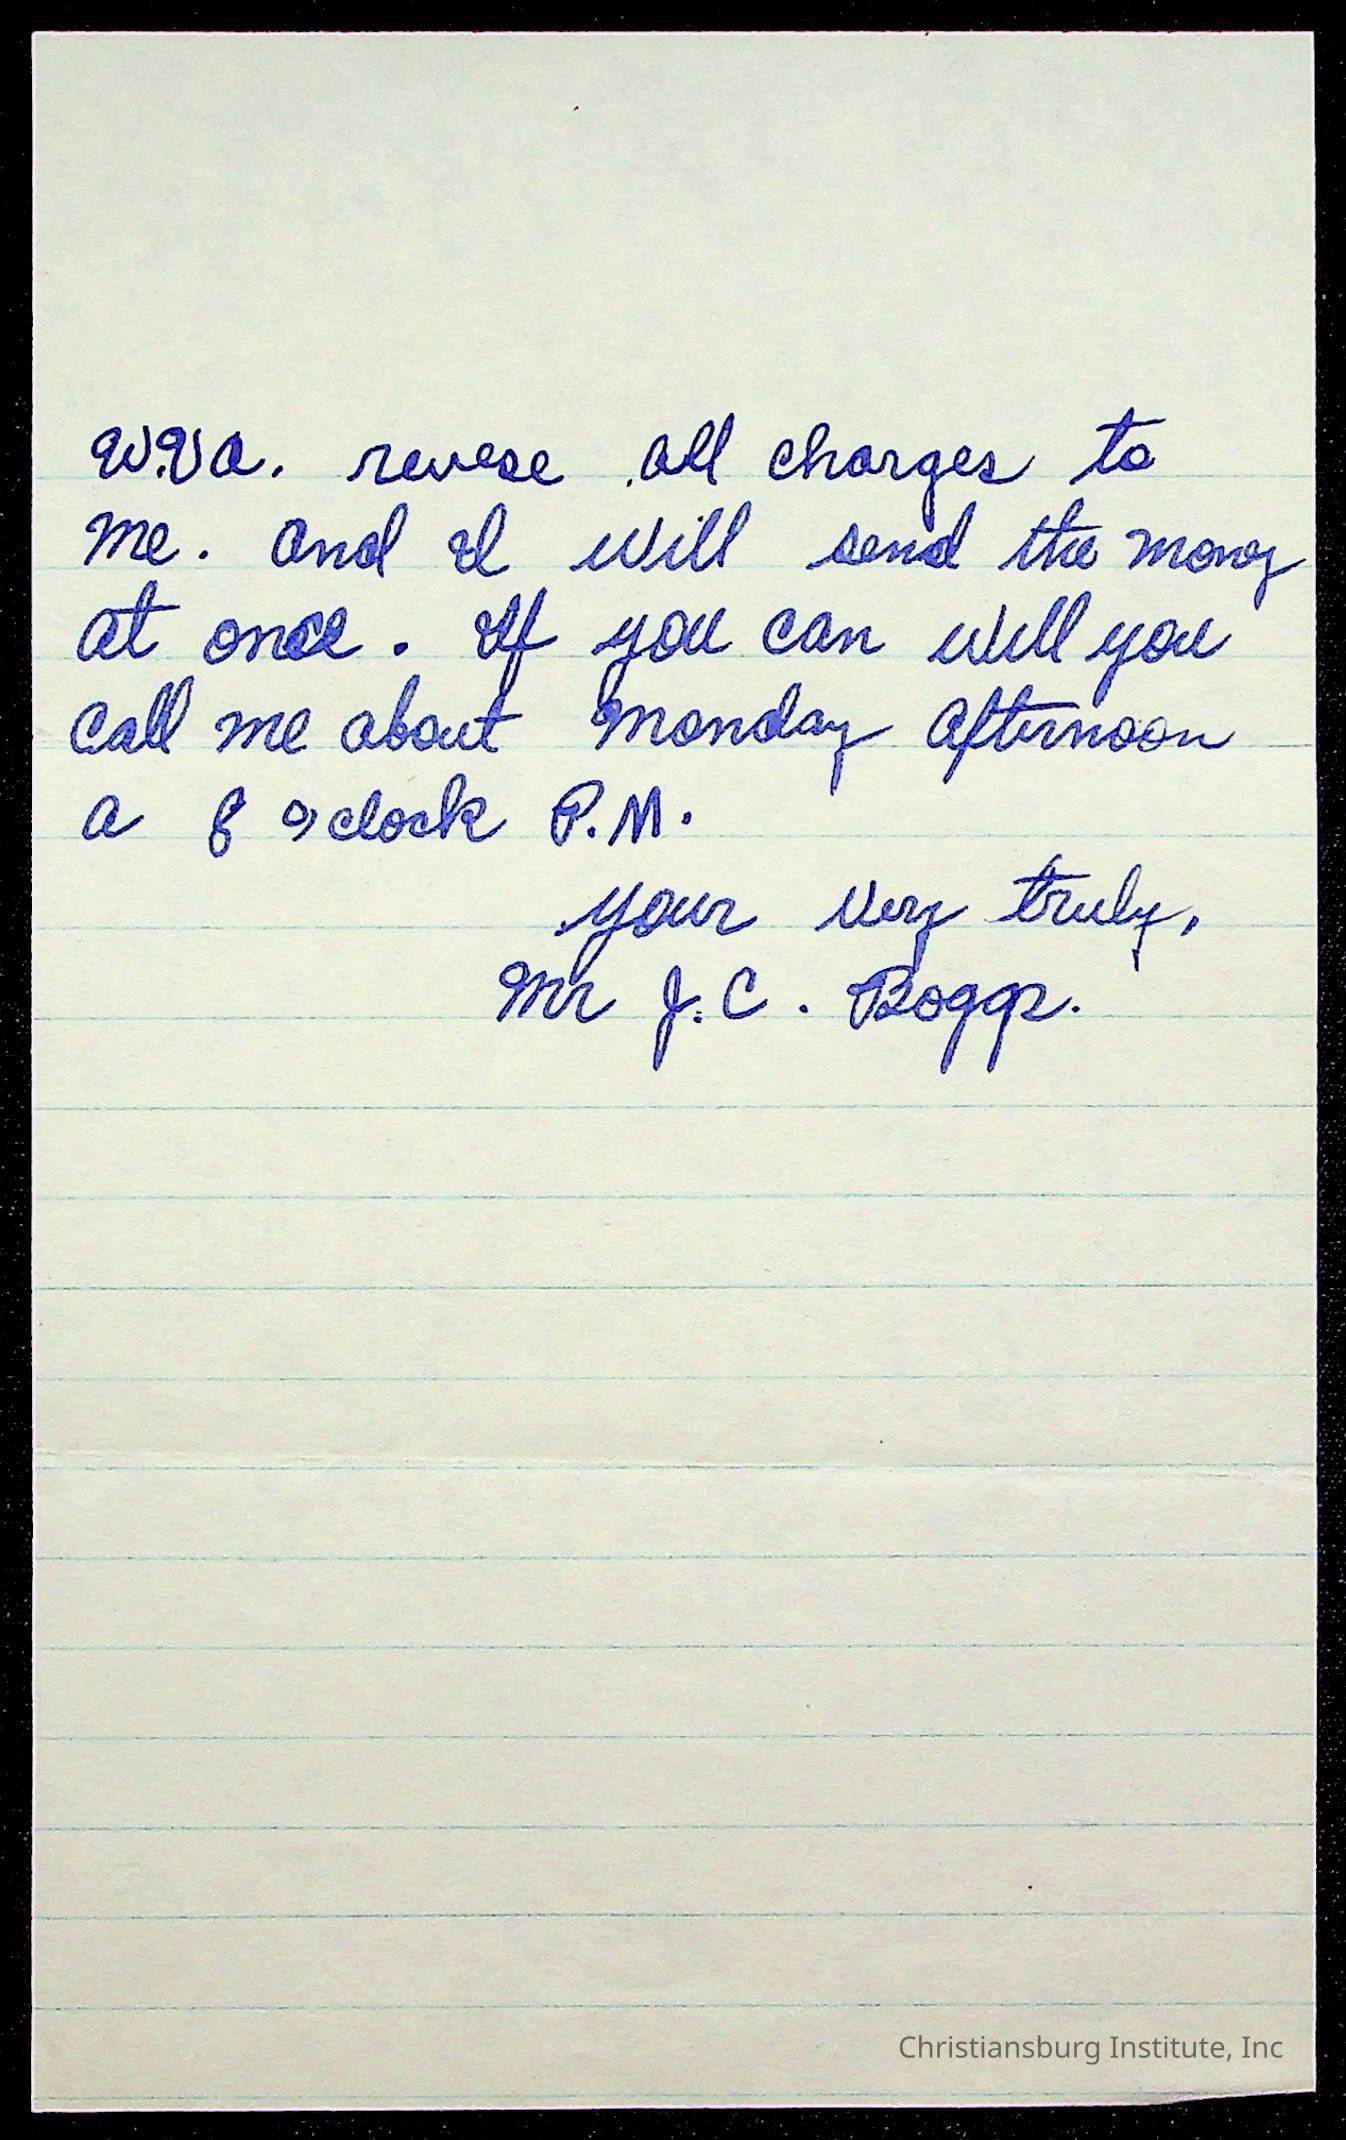 W.Va. revese all charges to
me. and I will send the mony
at once. If you can will you
call me about monday afternoon
a 8 o'clock P.M.
your very truly,
Mr J.C. Boggs.
Christiansburg Institute, Inc